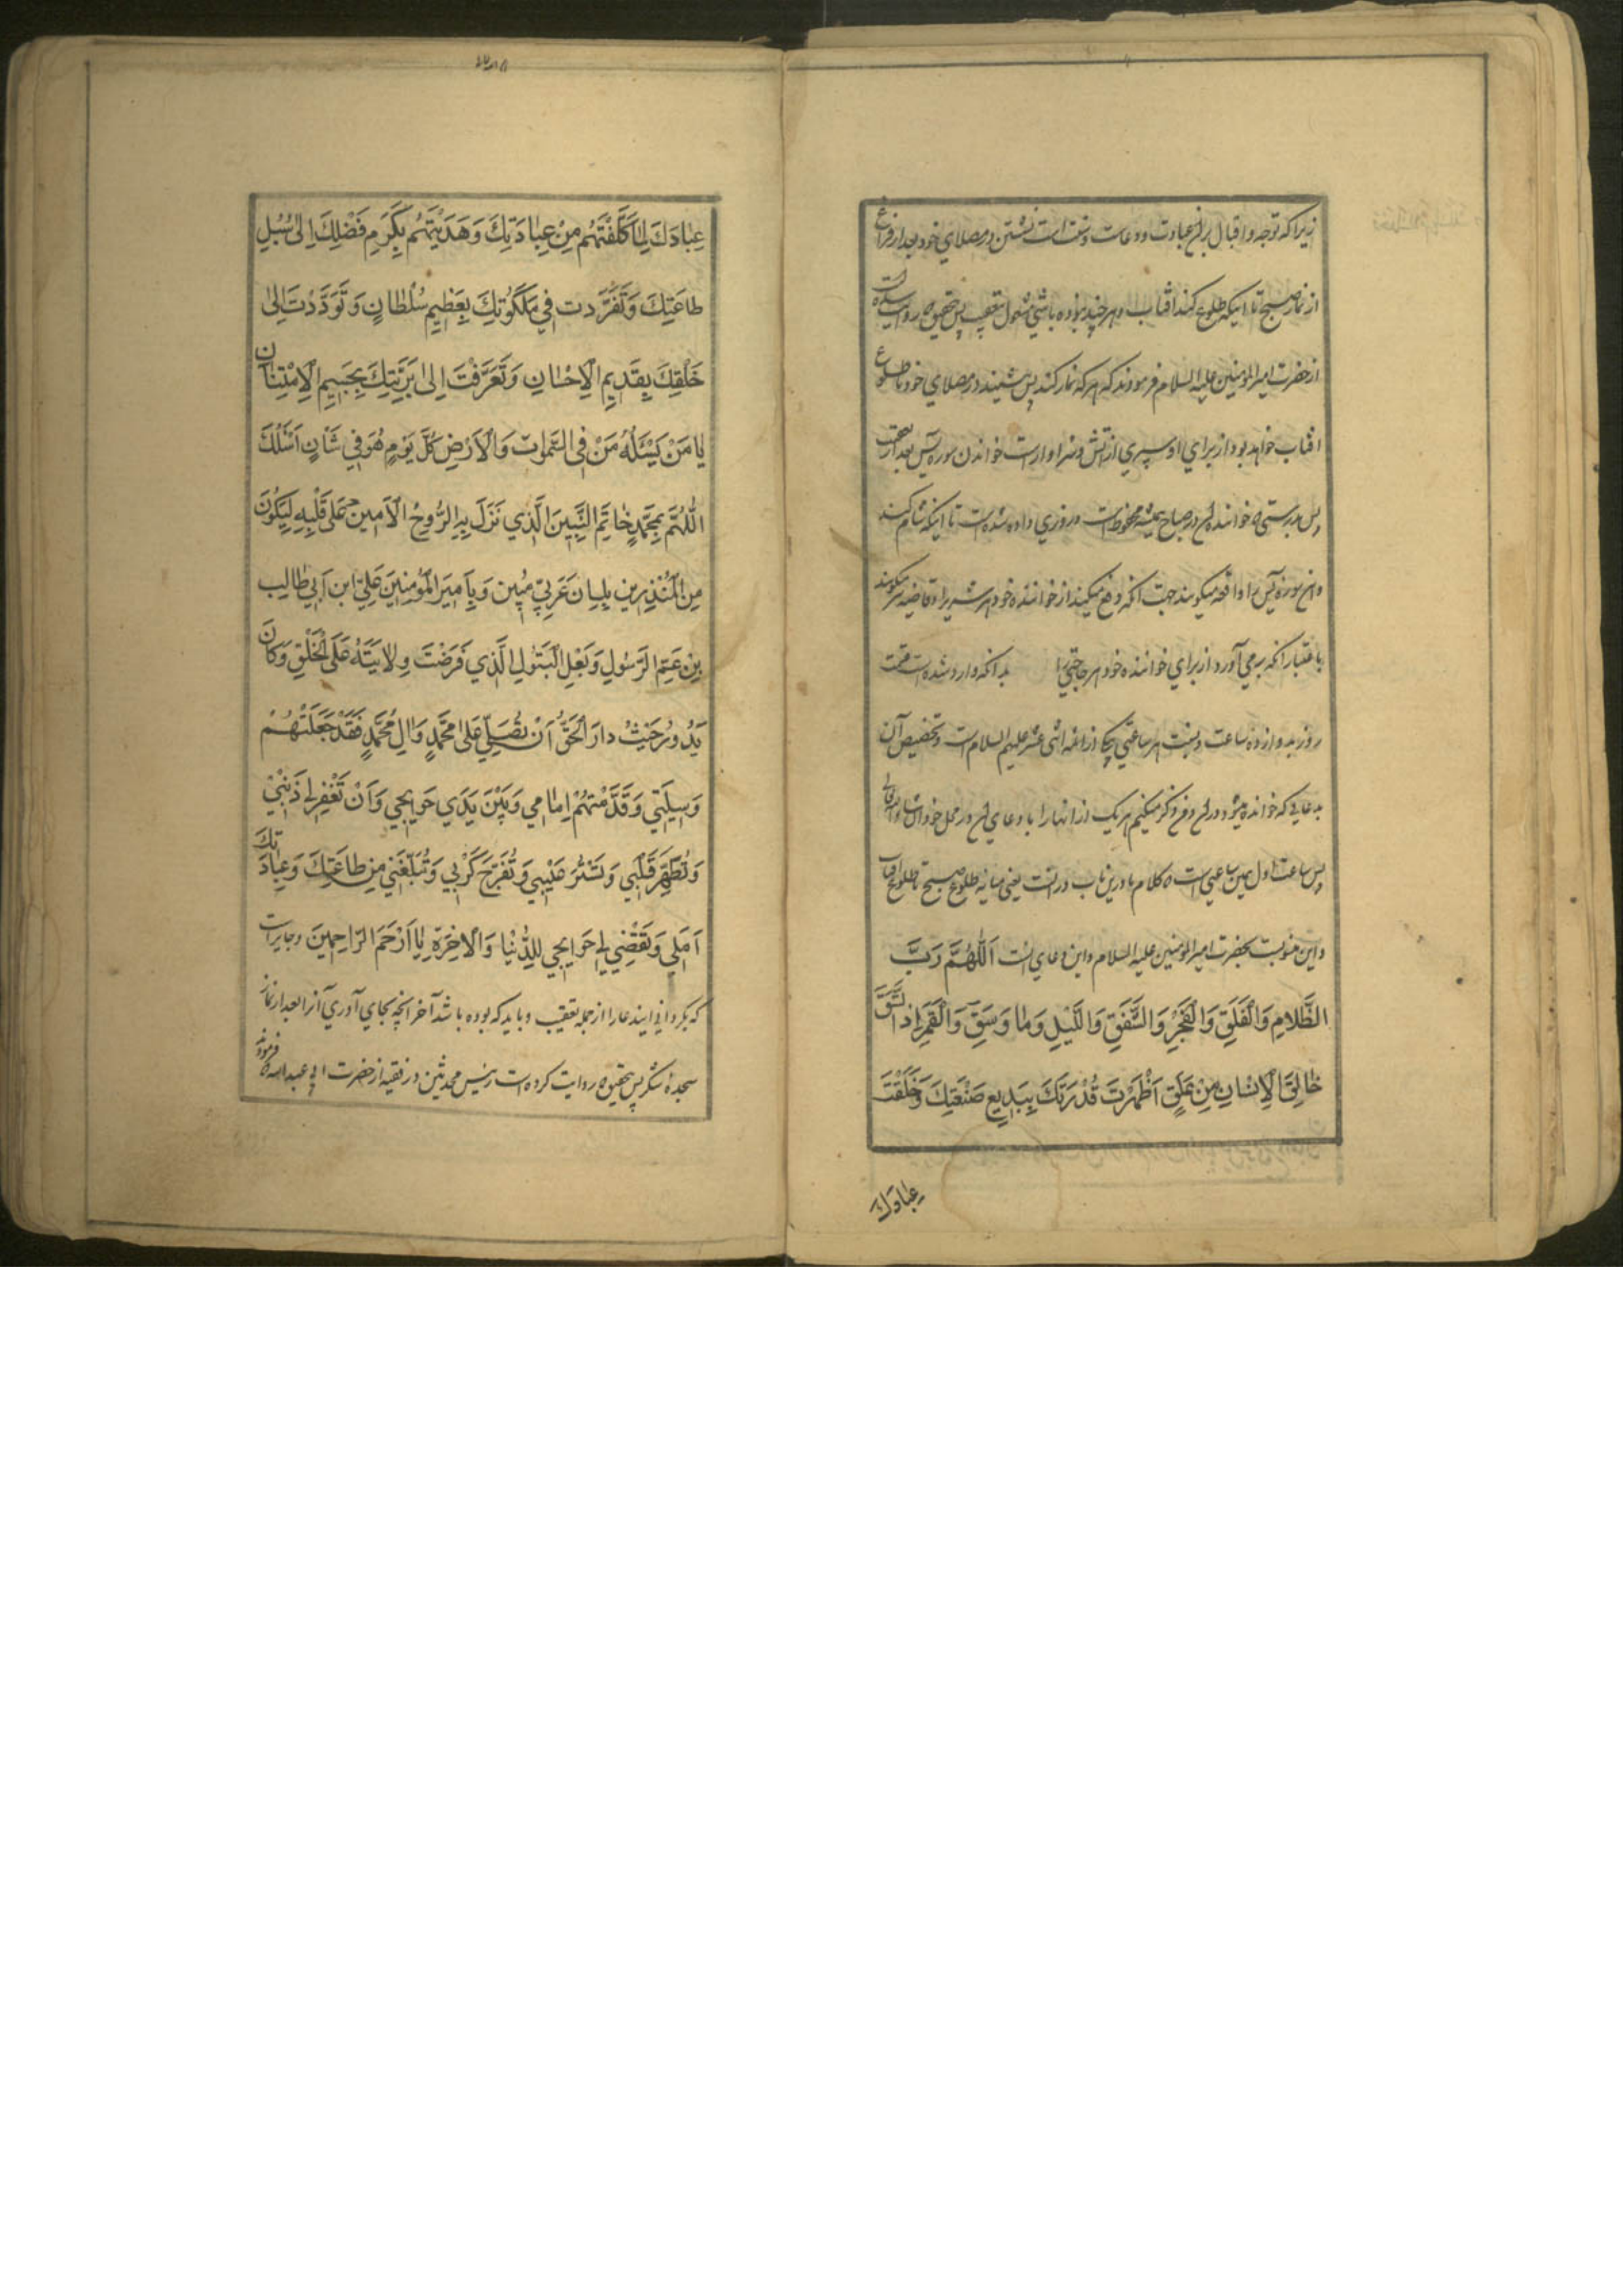 زیرا که توجه و اقبال بر ان عبادت و دعاست و سنت است نشستن در مصلای خود بعد از فراغ
از نماز صبح تا اینکه طلوع کند افتاب و هر چند نبوده باشی مشغول بتعقیب پس بتحقیق که روایت شده است
از حضرت امیرالمؤمنین علیه السلام فرمودند که هر که نماز کند پس بنشیند در مصلای خود تا طلوع
افتاب خواهد بود از برای او سپری از اتش و سزاوار است خواندن سوره یس بعد از تعقیب
پس بدرستی که خواننده ان در صباح همیشه محفوظ است و روزی داده شده است تا اینکه شام کند
و ان سوره یس را دافعه میکویند جهت انکه دفع میکند از خواننده خود هر شریرا و قاضیه میکویند
باعتبار انکه بر می آورد از برای خواننده خود هر حاجتی را بدانکه وارد شده است قسمت
روز بدوازده ساعت و نسبت هر ساعتی بیکی از ائمه اثنی عشر علیهم السلام است و تخصیص آن
بدعایی که خوانده میشود در ان و من ذکر میکنیم هر یک از انها را با دعای ان در محل خود انشاءالله تعالی
پس ساعت اول همین ساعتی است که کلام ما درین باب در انست یعنی میانه طلوع صبح تا طلوع افتاب
و این منسوبست بحضرت امیرالمؤمنین علیه السلام و این دعای است اَللّٰهُمَّ رَبَّ
الظَّلامِ وَالْفَلَقِ وَالْفَجْرِ وَالشَّفَقِ وَاللَّيْلِ وَمٰا وَسَقَ وَالْقَمَرِ اِذَا اتَّسَقَ
خٰالِقَ الْاِنْسٰانِ مِنْ عَلَقٍ اَظْهَرْتَ قُدْرَتَكَ بِبَدِيعِ صَنْعَتِكَ وَخَلَقْتَ
عِبٰادَكَ
عِبٰادَكَ لِمٰا كَلَّفْتَهُمْ مِنْ عِبٰادَتِكَ وَهَدَيْتَهُمْ بِكَرَمِ فَضْلِكَ اِلىٰ سُبُلِ
طاعَتِكَ وَتَفَرَّدت في مَلَكُوتِكَ بِعَظِيمِ سُلْطانٍ وَتَوَدَّدْتَ اِلىٰ
خَلْقِكَ بِقَديمِ الْاِحْسٰانِ وَتَعَرَّفْتَ اِلىٰ بَرِيَّتِكَ بِجَسِيمِ الْاِمْتِنٰانِ
يٰا مَنْ يَسْئَلُهُ مَنْ فِى السَّمٰوات وَالْاَرْضِ كُلَّ يَوْمٍ هُوَ في شَانٍ اَسْئَلُكَ
اَللّٰهُمَّ بِمُحَمَّدٍ خٰاتَمِ النَّبِيّينَ الَّذي نَزَلَ بِهِ الرُّوحُ الْاَمين عَلىٰ قَلْبِهِ لِيَكُونَ
مِنَ الْمُنْذِرين بِلِسٰان عَرَبِيّ مُبين وَبِاَميرِ الْمُؤْمِنِينَ عَلِيّ ابن اَبي طٰالِب
بْنِ عَمِّ الرَّسُولِ وَبَعْلِ الْبَتُولِ الَّذي فَرَضْتَ وِلايَتَهُ عَلَى الْخَلْقِ وَكٰانَ
يَدُورُ حَيْثُ دارَ الْحَقُّ اَنْ تُصَلِّيَ عَلىٰ مُحَمَّدٍ وَاٰلِ مُحَمَّدٍ فَقَدْ جَعَلْتُهُمْ
وَسيلَتي وَقَدَّمْتُهُمْ اِمٰامي وَبَيْنَ يَدَي حَوايِجي وَاَنْ تَغْفِرَ لي ذَنْبي
وَتُطَهِّرَ قَلْبي وَتَسْتُرَ عَيْبي وَتُفَرِّجَ كَرْبي وَتُبَلِّغَني مِن طاعَتِكَ وَعِبٰادَتِكَ
اَمَلي وَتَقْضِيَ لي حَوايِجي لِلدُّنْيٰا وَالْاخِرَةِ يٰا اَرْحَمَ الرّاحِمينَ و جایز است
که بکردانی ایندعا را از جمله تعقیب و باید که بوده باشد آخر انچه بجای آوری آنرا بعد از نماز
سجدهٔ شکر پس بتحقیق که روایت کرده است رئیس محدثین در فقیه از حضرت ابی عبدالله که فرمودند